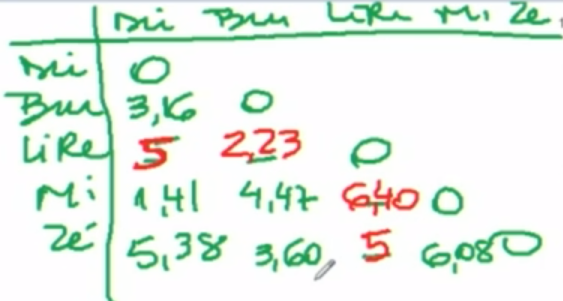 Dii Bru LiRe Mi Zé
Dii 0
Bru 3,16 0
LiRe 5 2,23 0
Mi 1,41 4,47 6,40 0
Zé 5,38 3,60 5 6,08 0